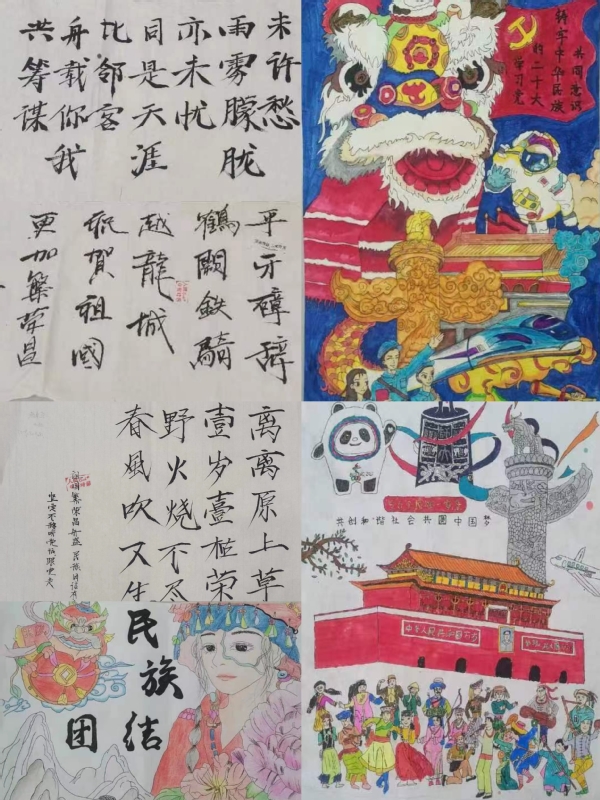 未许愁
雨雾朦胧
亦未忧
同是天涯
比邻客
舟载你我
共筹谋
共同意识
铸牢中华民族
的二十大
学习党
平牙璋辞
鶴闕鉄騎
越龍城
祝賀祖國
更加繁荣昌
离离原上草
壹岁壹枯荣
野火烧不尽
春風吹又生
共创和谐社会共圆中国梦
中华人民共和国万
民族
团结